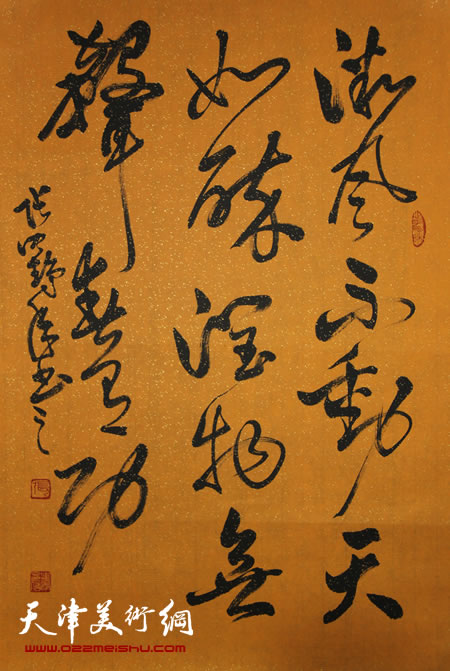 微風不動天
如醉潤物無
聲春有功
书之
天津美術網
www.022meishu.com